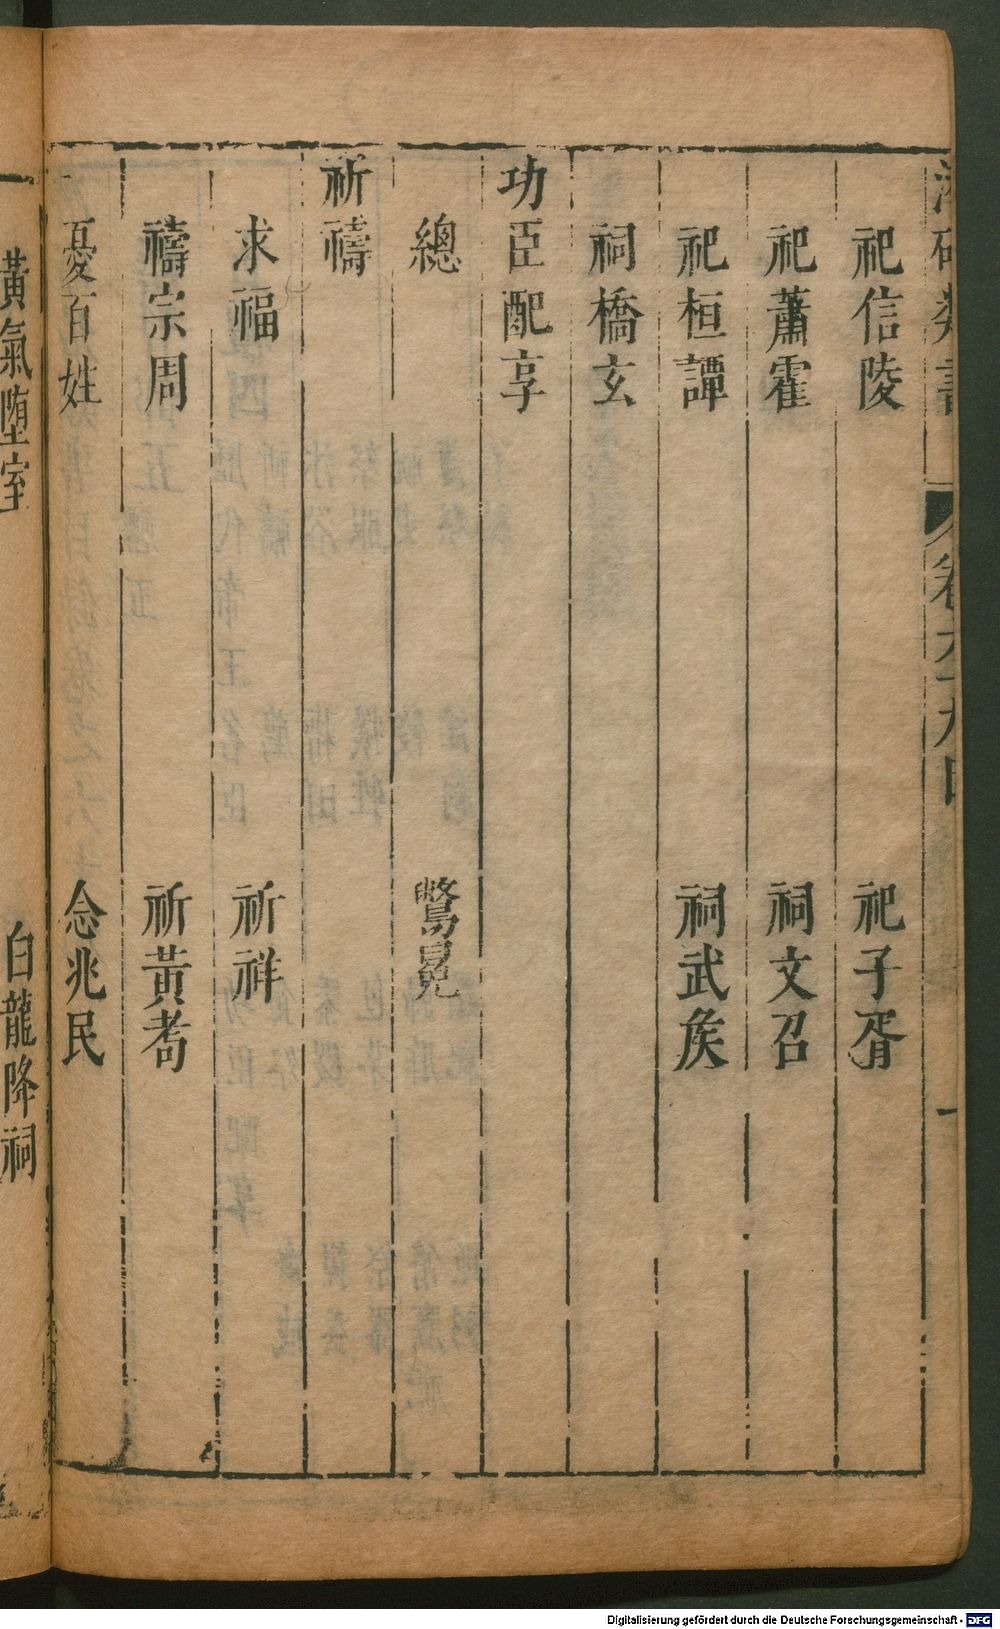 祀信陵 祀子胥
祀蕭霍 祠文召
祀桓譚 祠武矦
祠橋玄
功臣配享
總 鷩冕
祈禱
求福 祈祥
禱宗周 祈黃耉
憂百姓 念兆民
黃氣墮室 白龍降祠
Digitalisierung gefördert durch die Deutsche Forschungsgemeinschaft - DFG